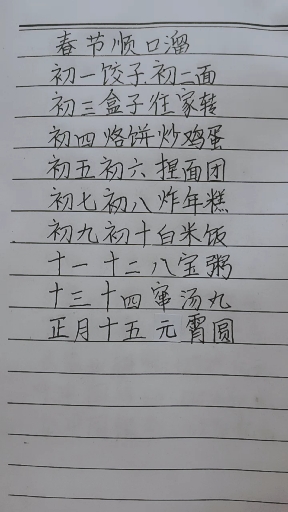 春节顺口溜
初一饺子初二面
初三盒子往家转
初四烙饼炒鸡蛋
初五初六捏面团
初七初八炸年糕
初九初十白米饭
十一十二八宝粥
十三十四窜汤丸
正月十五元霄圆